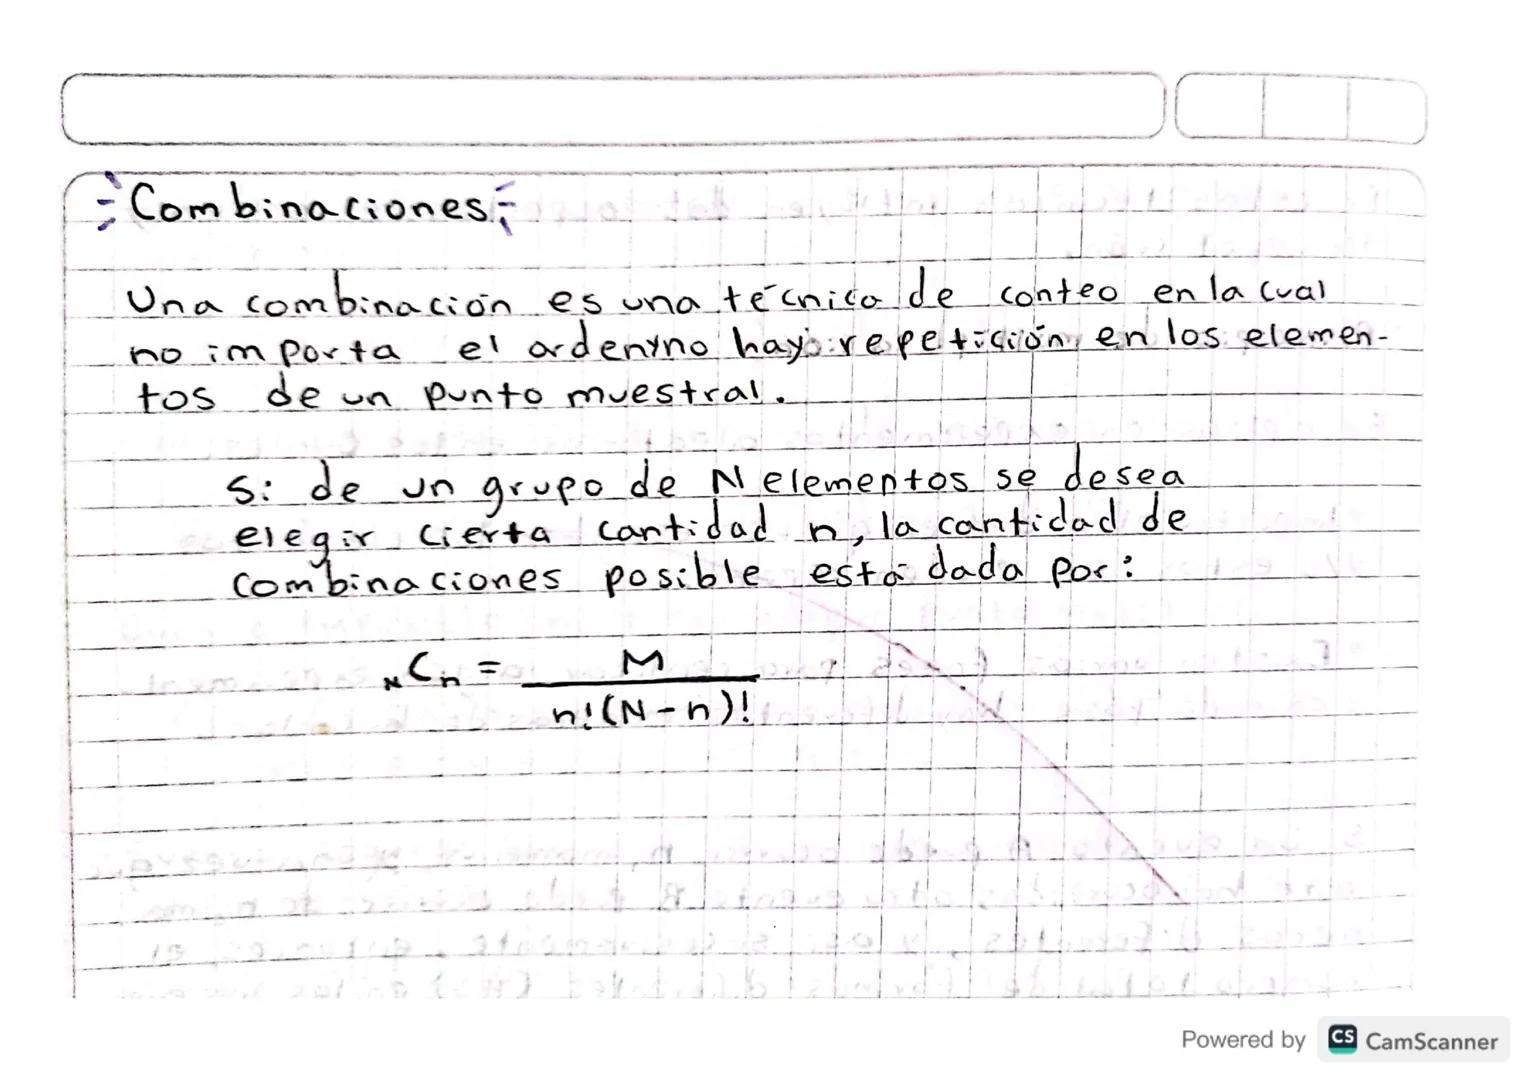 Combinaciones
Una combinación es una técnica de conteo en la cual
no importa el orden y no hay repetición en los elemen-
tos de un punto muestral.
Si de un grupo de N elementos se desea
elegir cierta cantidad n, la cantidad de
combinaciones posible está dada por:
NCn = M
n!(N-n)!
Powered by CS CamScanner